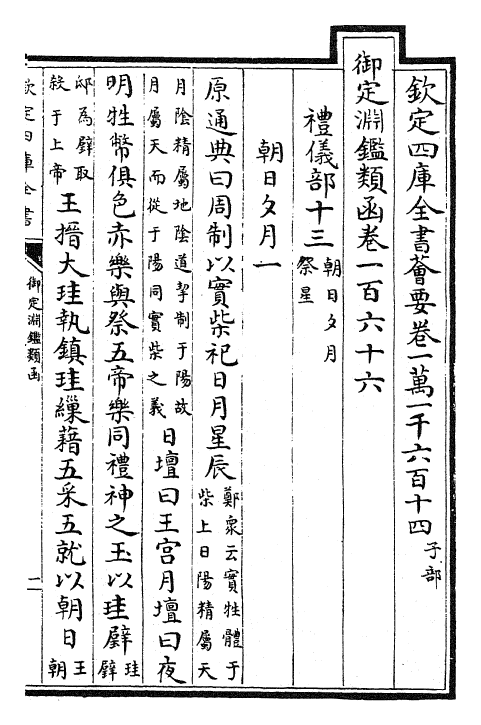 欽定四庫全書薈要卷一萬一千六百十四 子部
御定淵鑑類函卷一百六十六
禮儀部十三 朝日夕月 祭星
朝日夕月一
原通典曰周制以實柴祀日月星辰 鄭衆云實牲體于柴上日陽精屬天
月陰精屬地陰道掣制于陽故月屬天而從于陽同實柴之義 日壇曰王宮月壇曰夜
明牲幣俱色赤樂與祭五帝樂同禮神之玉以珪璧 珪璧
邸為璧取殺于上帝 王搢大珪執鎮珪繅藉五采五就以朝日 王朝
欽定四庫全書
御定淵鑑類函